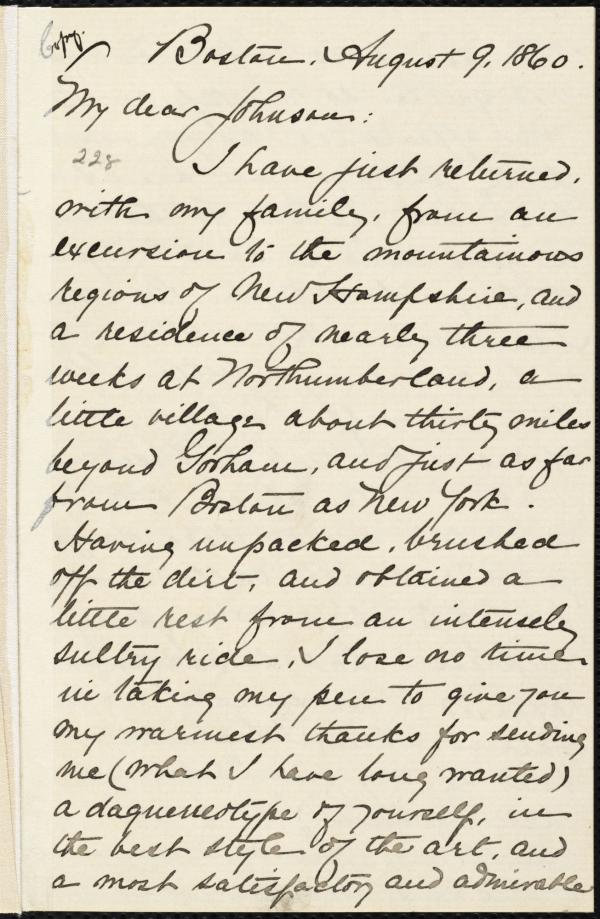 Copy.
Boston, August 9, 1860.
My dear Johnson:
228 I have just returned,
with my family, from an
excursion to the mountainous
regions of New Hampshire, and
a residence of nearly three
weeks at Northumberland, a
little village about thirty miles
beyond Gorham, and just as far
from Boston as New York.
Having unpacked, brushed
off the dirt, and obtained a
little rest from an intensely
sultry ride, I lose no time
in taking my pen to give you
my warmest thanks for sending
me (what I have long wanted)
a daguerreotype of yourself, in
the best style of the art, and
a most satisfactory and admirable